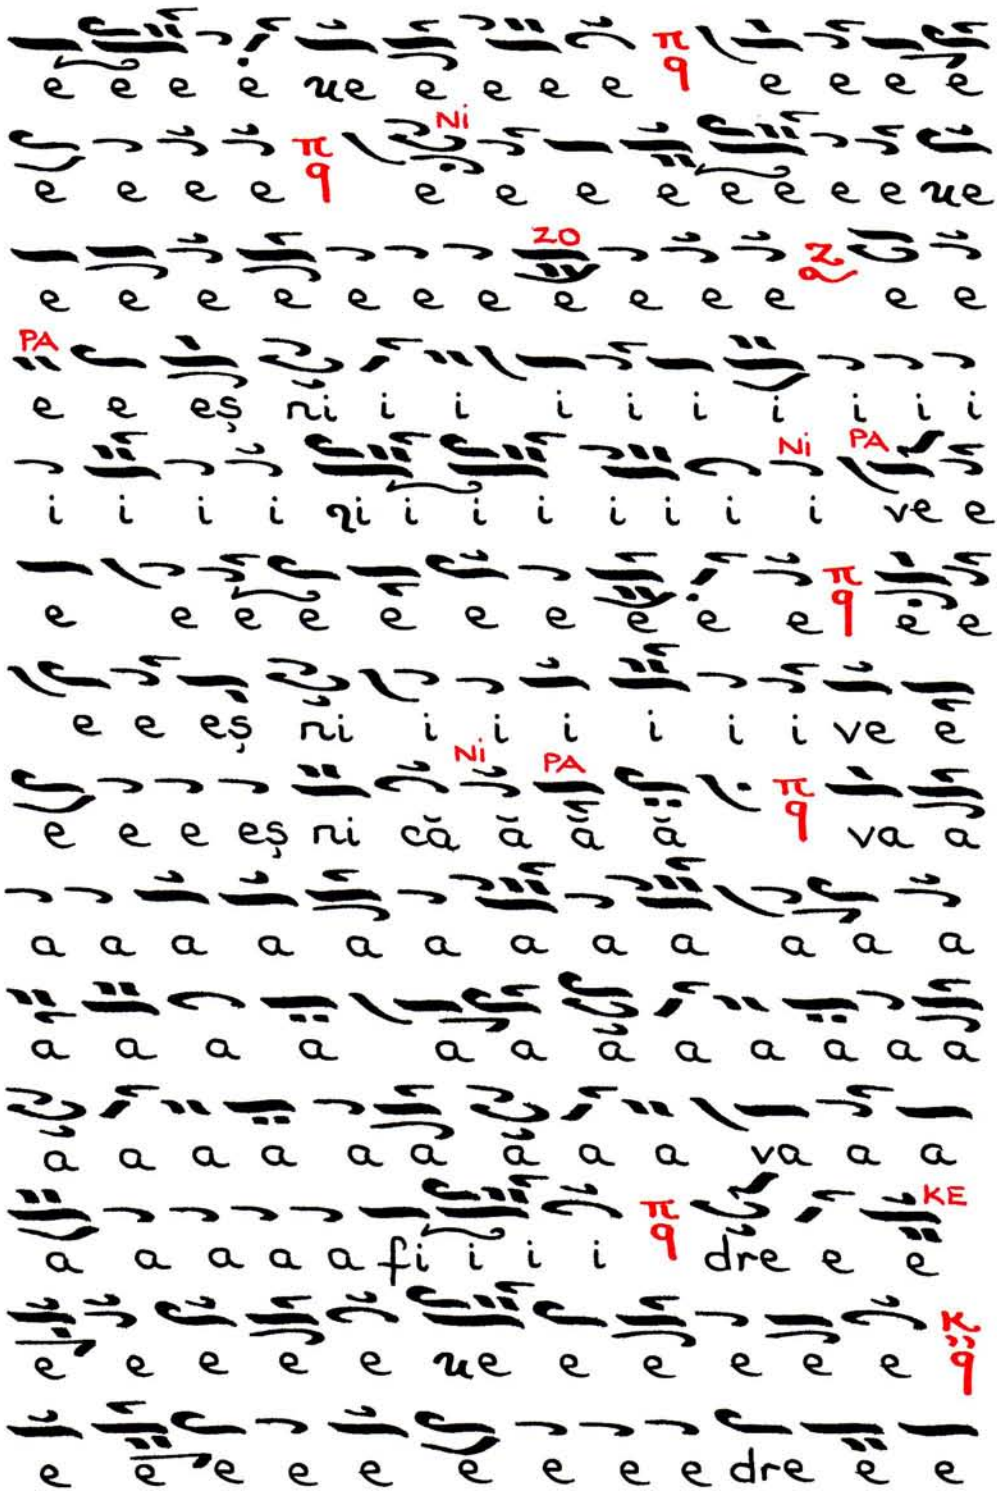 e e e e ue e e e e π q e e e e
Ni
e e e e π q e e e e e e e e ue
ZO
e e e e e e e e e e e Z e e
PA
e e eș ni i i i i i i i i i
Ni PA
i i i i ni i i i i i i i ve e
e e e e e e e e e e π q e e
e e eș ni i i i i i i ve e
Ni PA
e e e eș ni că ă ă ă π q va a
a a a a a a a a a a a a
a a a a a a a a a a a a
a a a a a a a a a va a a
KE
a a a a a fi i i i π q dre e e
e e e e e ue e e e e e K q
e e e e e e e e e dre e e